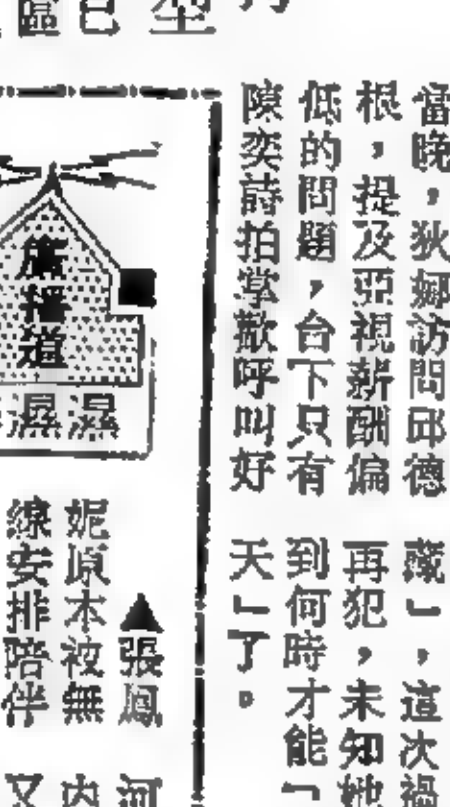 型
已
區
當晚，狄娜訪問邱德
根，提及亞視薪酬偏
低的問題，台下只有
陳奕詩拍掌歡呼叫好
藏」，這次禍
再犯，未知她
到何時才能「
天」了。
廣播道
濕濕
▲張鳳
妮原本被無
線安排陪伴
河
内
又